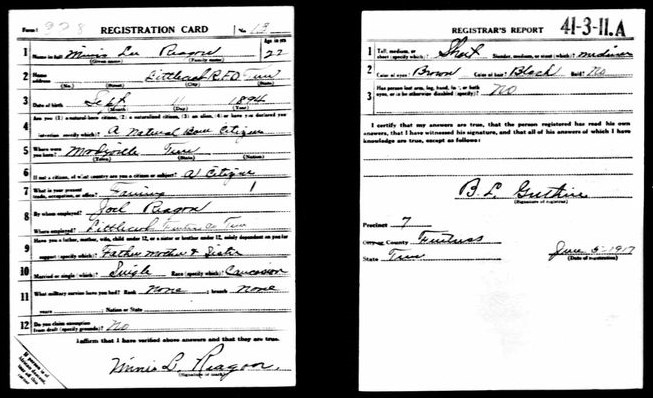 Form 1 928 REGISTRATION CARD No. 13
1 Name in full Minis Lee Reagon Age in yrs 22
(Given name) (Family name)
2 Home address RFD Tenn
(No.) (Street) (City) (State)
3 Date of birth Sept 11 1894
(Month) (Day) (Year)
4 Are you (1) a natural-born citizen, (2) a naturalized citizen, (3) an alien, (4) or have you declared your
intention (specify which)? A Natural Born Citizen
5 Where were you born? Tenn
(Town) (State) (Nation)
6 If not a citizen, of what country are you a citizen or subject? A Citizen
7 What is your present trade, occupation, or office? Farming 1
8 By whom employed? Joel Reagon
Where employed? Fentress Tenn
9 Have you a father, mother, wife, child under 12, or a sister or brother under 12, solely dependent on you for
support (specify which)? Father Mother & Sister
10 Married or single (which)? Single Race (specify which)? Caucasian
11 What military service have you had? Rank None ; branch None
years ; Nation or State
12 Do you claim exemption from draft (specify grounds)? No
I affirm that I have verified above answers and that they are true.
Minis L. Reagon.
(Signature or mark)
REGISTRAR'S REPORT 41-3-11.A
1 Tall, medium, or short (specify which)? Short Slender, medium, or stout (which)? medium
2 Color of eyes? Brown Color of hair? Black Bald? No
3 Has person lost arm, leg, hand, foot, or both eyes, or is he otherwise disabled (specify)? NO
I certify that my answers are true, that the person registered has read his own
answers, that I have witnessed his signature, and that all of his answers of which I have
knowledge are true, except as follows:
B. L.
(Signature of registrar)
Precinct 7
City or County Fentress
State Tenn June 5-1917
(Date of registration)